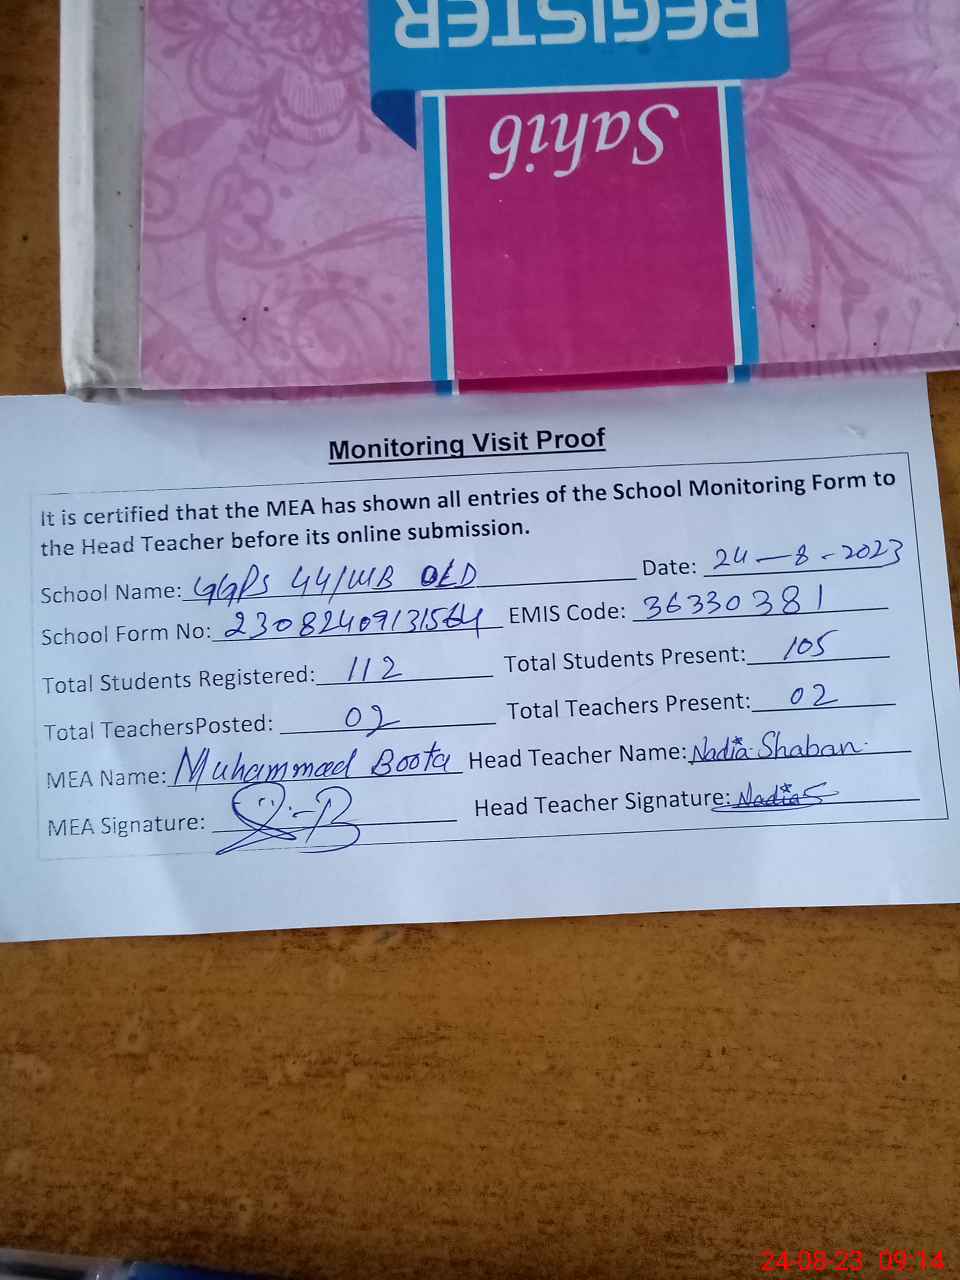 REGISTER
Sahib
Monitoring Visit Proof
It is certified that the MEA has shown all entries of the School Monitoring Form to
the Head Teacher before its online submission.
School Name: GGPS 44/WB OLD Date: 24-8-2023
School Form No: 23082409131564 EMIS Code: 36330381
Total Students Registered: 112 Total Students Present: 105
Total TeachersPosted: 02 Total Teachers Present: 02
MEA Name: Muhammad Boota Head Teacher Name: Nadia Shaban
MEA Signature: Head Teacher Signature: Nadia S
24-08-23 09:14